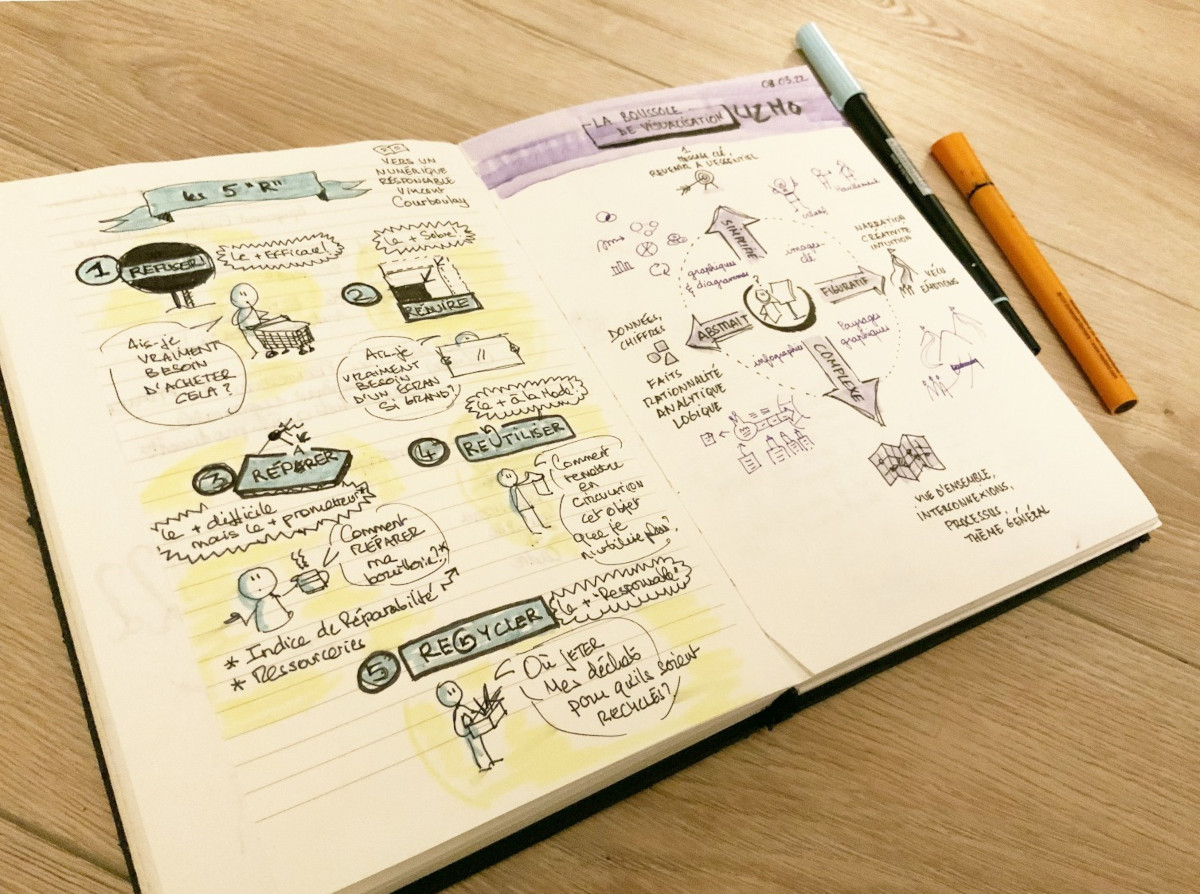 les 5 "R"
VERS UN
NUMÉRIQUE
RESPONSABLE
Vincent
Courboulay
1
REFUSER!
Le + Efficace!
Ais-je
VRAIMENT
BESOIN
D'ACHETER
CELA?
Le + Sobre!
2
RÉDUIRE
VRAIMENT
BESOIN
D'UN ÉCRAN
SI GRAND?
3
RÉPARER
Le + difficile
mais le + prometteur*
Comment
RÉPARER
ma
bouilloire?*
* Indice de Réparabilité
* Ressourceries
Le + à la Mode!
4
RÉUTILISER
Comment
remettre
en
CIRCULATION
cet objet
que je
n'utilise plus?
5
RECYCLER
Le + Responsable!
OÙ JETER
Mes déchets
pour qu'ils soient
RECYCLÉS?
08.03.22
LA BOUSSOLE
DE VISUALISATION
UZMO
1
MESSAGE CLÉ,
REVENIR À L'ESSENTIEL
SIMPLIFIÉ
graphiques
& diagrammes
images
clé
NARRATION
CRÉATIVITÉ
INTUITION
FIGURATIF
VÉCU
ÉMOTIONS
ABSTRAIT
DONNÉES,
CHIFFRES
FAITS
RATIONNALITÉ
ANALYTIQUE
LOGIQUE
infographies
COMPLEXE
Paysages
graphiques
VUE D'ENSEMBLE,
INTERCONNEXIONS,
PROCESSUS,
THÈME GÉNÉRAL